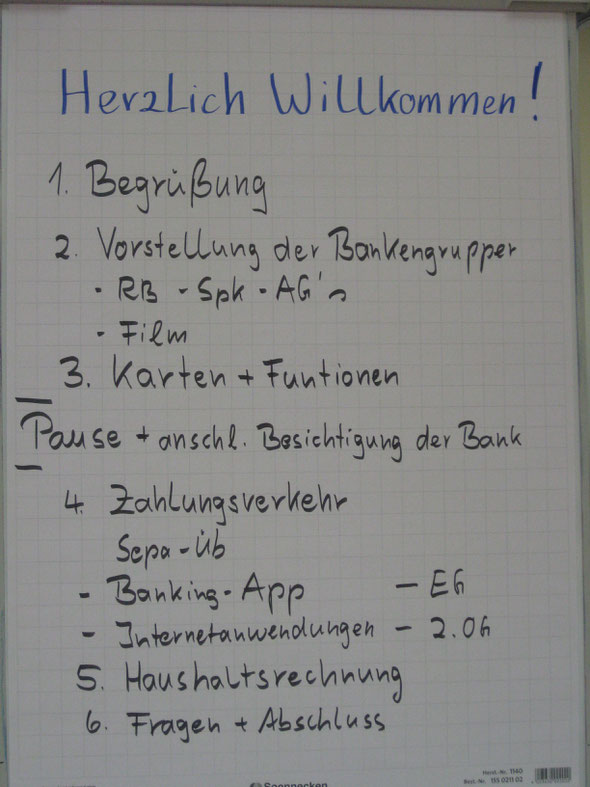 Herzlich Willkommen!
1. Begrüßung
2. Vorstellung der Bankengruppen
- RB - Spk - AG's
- Film
3. Karten + Funtionen
Pause + anschl. Besichtigung der Bank
4. Zahlungsverkehr
Sepa-Üb
- Banking-App - EG
- Internetanwendungen - 2.OG
5. Haushaltsrechnung
6. Fragen + Abschluss
Herst.-Nr. 1140
Best.-Nr. 155 0211 02
Soennecken